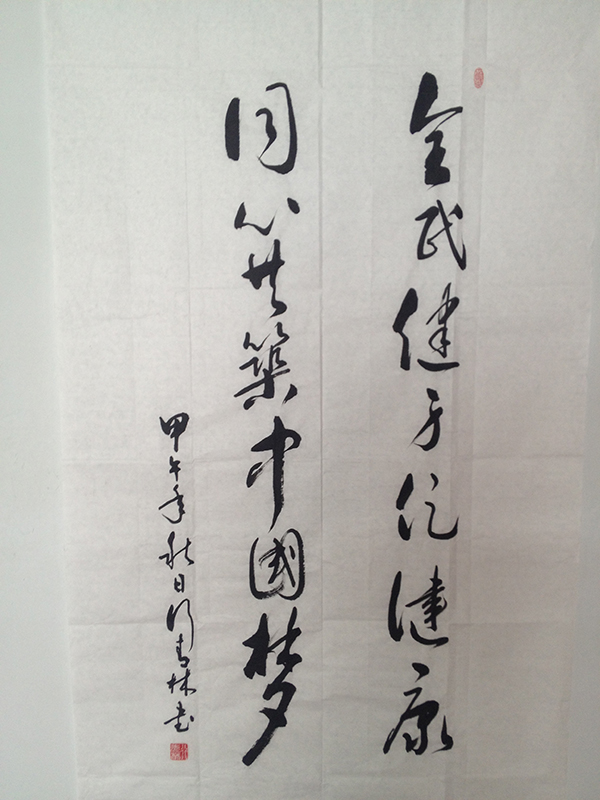 全民健身促健康
同心共築中國梦
甲午年秋日青林书